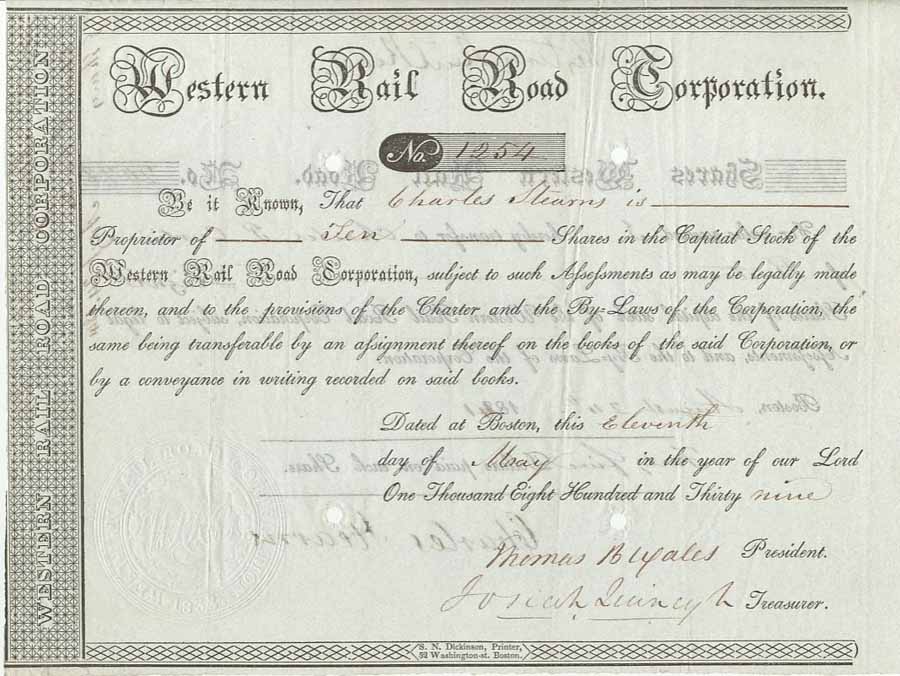 Western Rail Road Corporation.
No. 1254
Be it Known, That Charles Stearns is
Proprietor of Ten Shares in the Capital Stock of the
Western Rail Road Corporation, subject to such Assessments as may be legally made
thereon, and to the provisions of the Charter and the By-Laws of the Corporation, the
same being transferable by an assignment thereof on the books of the said Corporation, or
by a conveyance in writing recorded on said books.
Dated at Boston, this Eleventh
day of May in the year of our Lord
One Thousand Eight Hundred and Thirty nine
Thomas B Wales President.
Josiah Quincy Jr Treasurer.
S. N. Dickinson, Printer,
52 Washington-st. Boston.
WESTERN RAIL ROAD CORPORATION